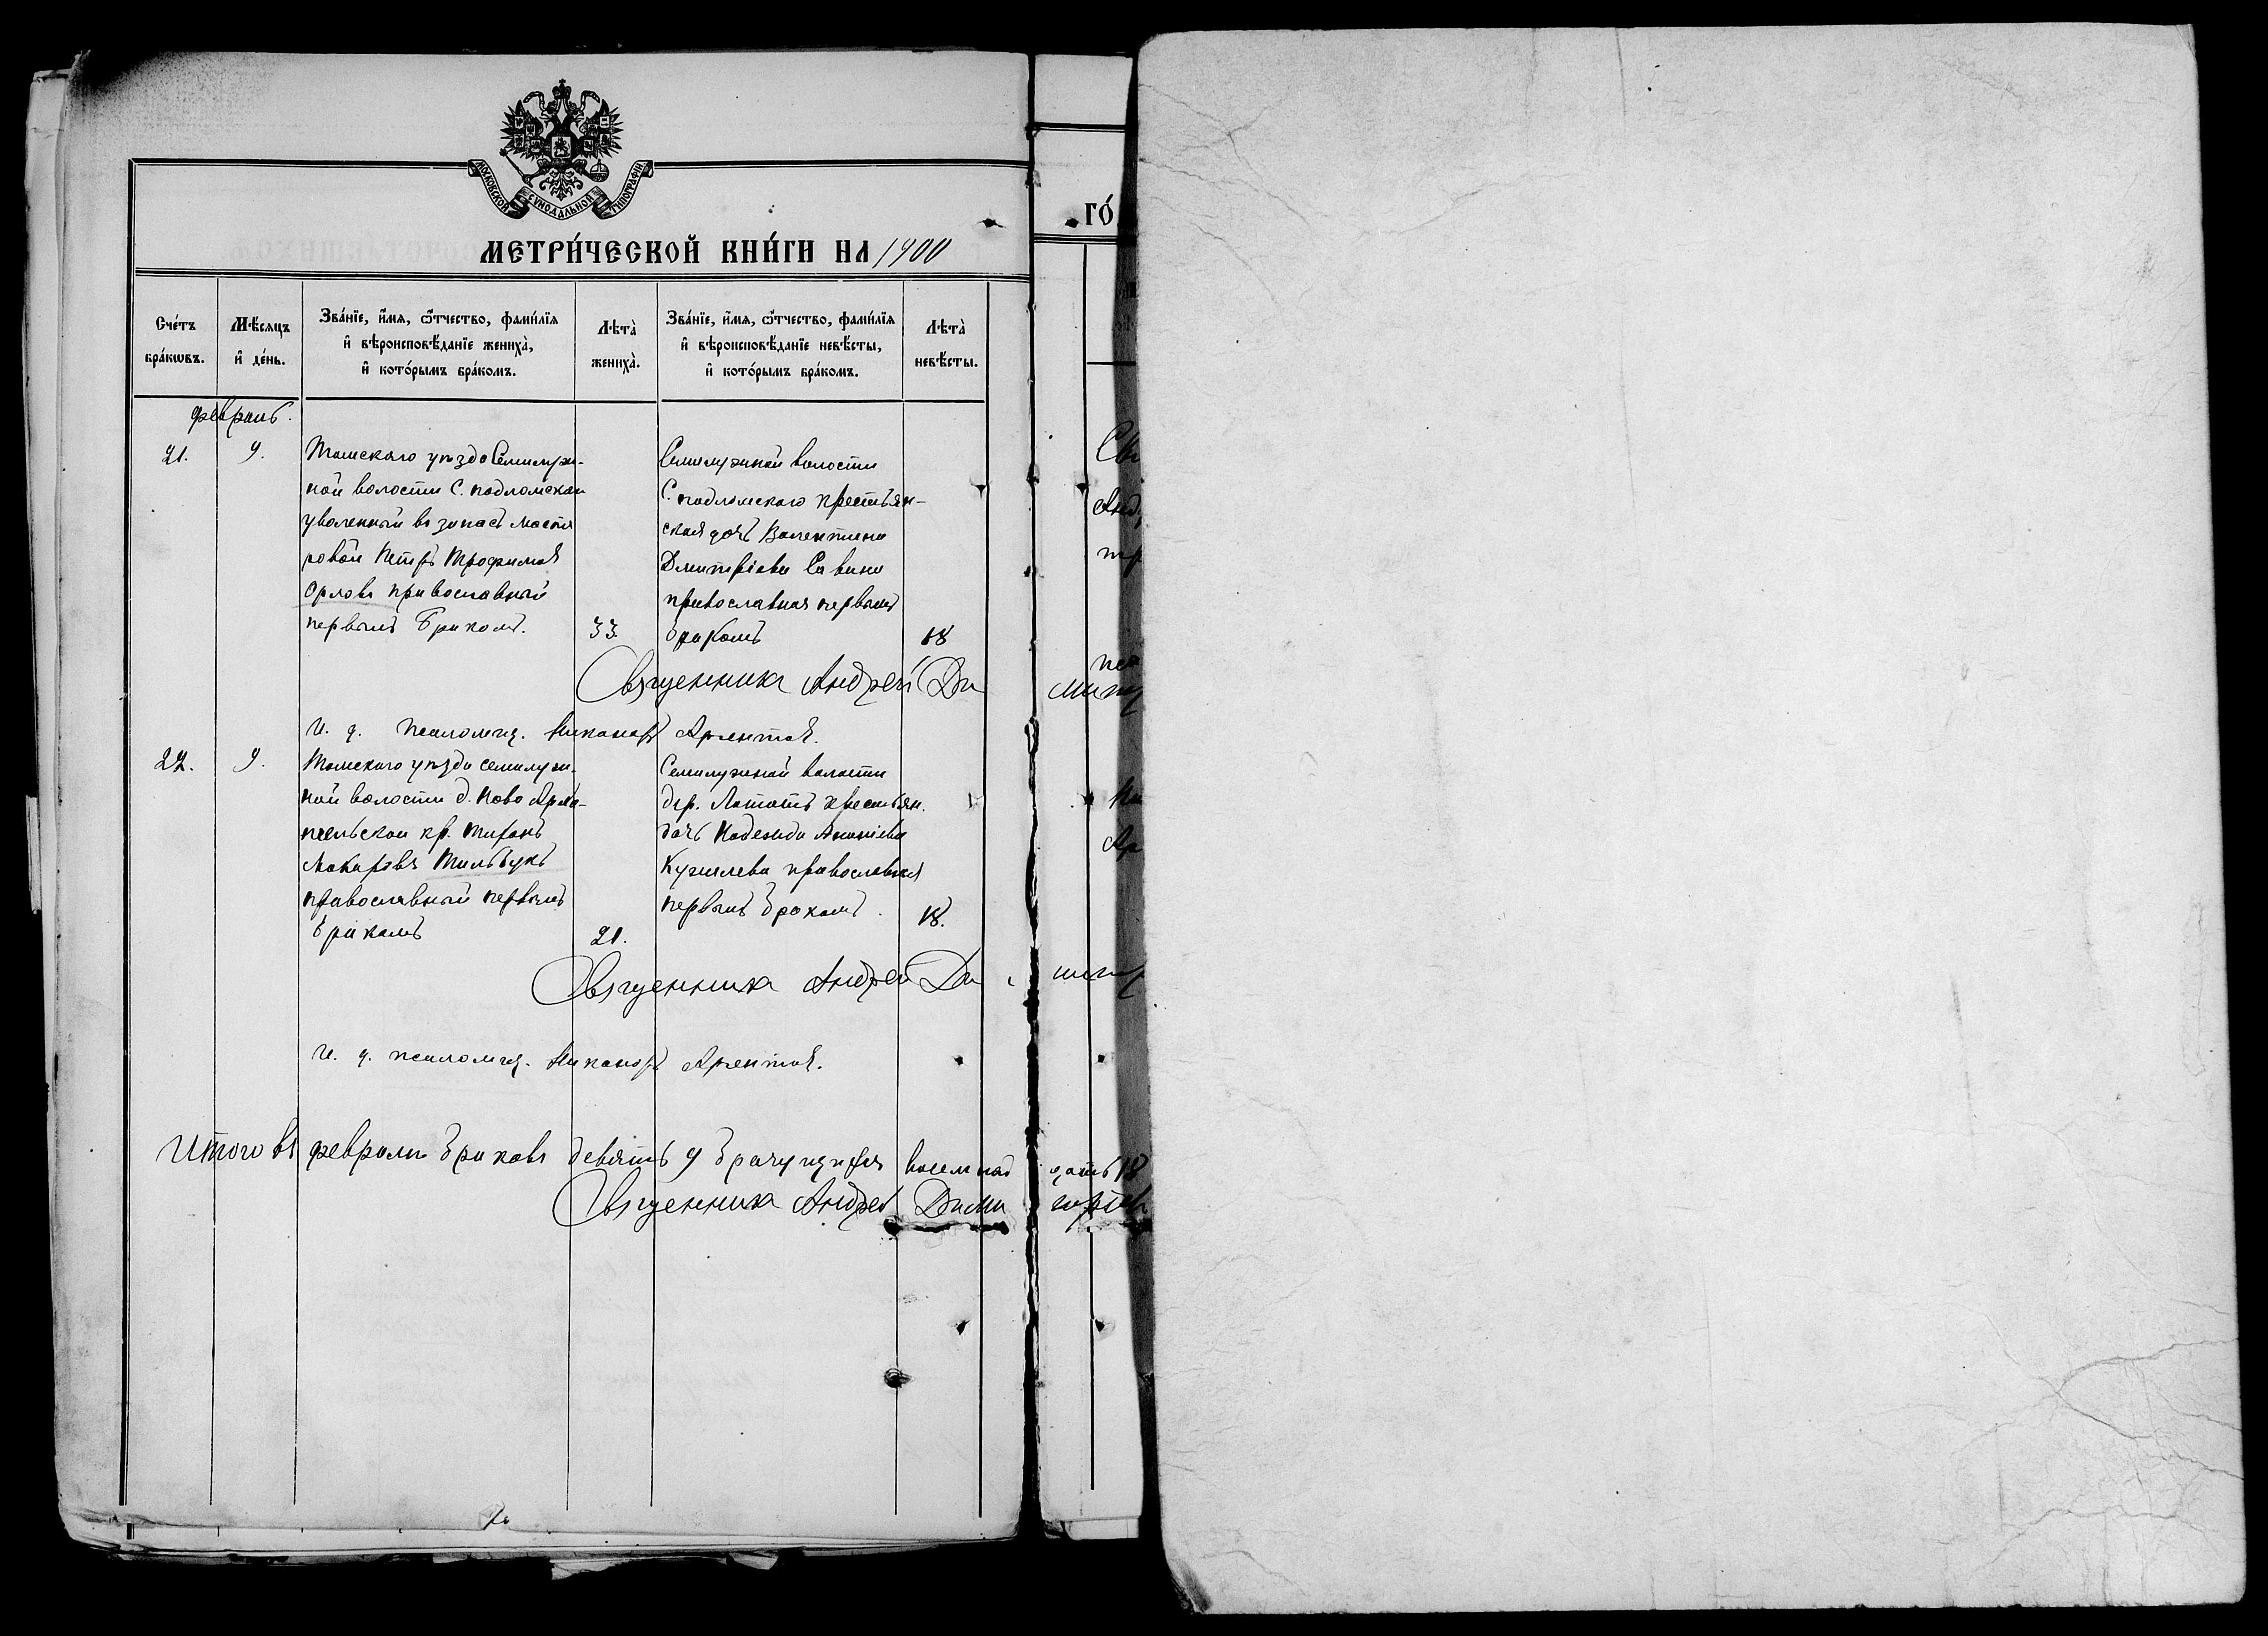 МОСКОВСКОЙ СѴНОДАЛЬНОЙ ТИПОГРАФІИ
МЕТРИ́ЧЕСКОЙ КНИ́ГИ НА 1900
ГО́
Сче́тъ бра́кѡвъ.
Мѣ́сяцъ и҆ де́нь.
Зва́нїе, и҆́мя, ѻ҆́тчество, фами́лїя и҆ вѣроисповѣ́данїе жениха̀, и҆ кото́рымъ бра́комъ.
Лѣта̀ жениха̀.
Зва́нїе, и҆́мя, ѻ҆́тчество, фами́лїя и҆ вѣроисповѣ́данїе невѣ́сты, и҆ кото́рымъ бра́комъ.
Лѣта̀ невѣ́сты.
февраль.
21.
9.
Томскаго уѣзда Семилуж-
ной волости С. подломскаго
уволенный въ запасъ масте
ровой Петръ Трофимов
Орловъ православный
первымъ бракомъ.
33
Семилужной волости
С. подломскаго крестьян-
ская дочь Валентина
Дмитріева Савина
православная первымъ
бракомъ
18
Священникъ Андрей Ди
И. д. псаломщ. Никаноръ
22.
9.
Томскаго уѣзда семилуж-
ной волости д. Ново Арха-
нгельской кр. Тихонъ
Макаровъ
православный первымъ
бракомъ
21.
Семилужной волости
дер. крестьян.
дочь Надежда Ананіева
православная
первымъ бракомъ.
18.
Священникъ Андрей Ди
И. д. псаломщ. Никаноръ
Итого въ февралѣ браковъ девять 9 брачущихся восемнад цать 18
Священникъ Андрей Дими